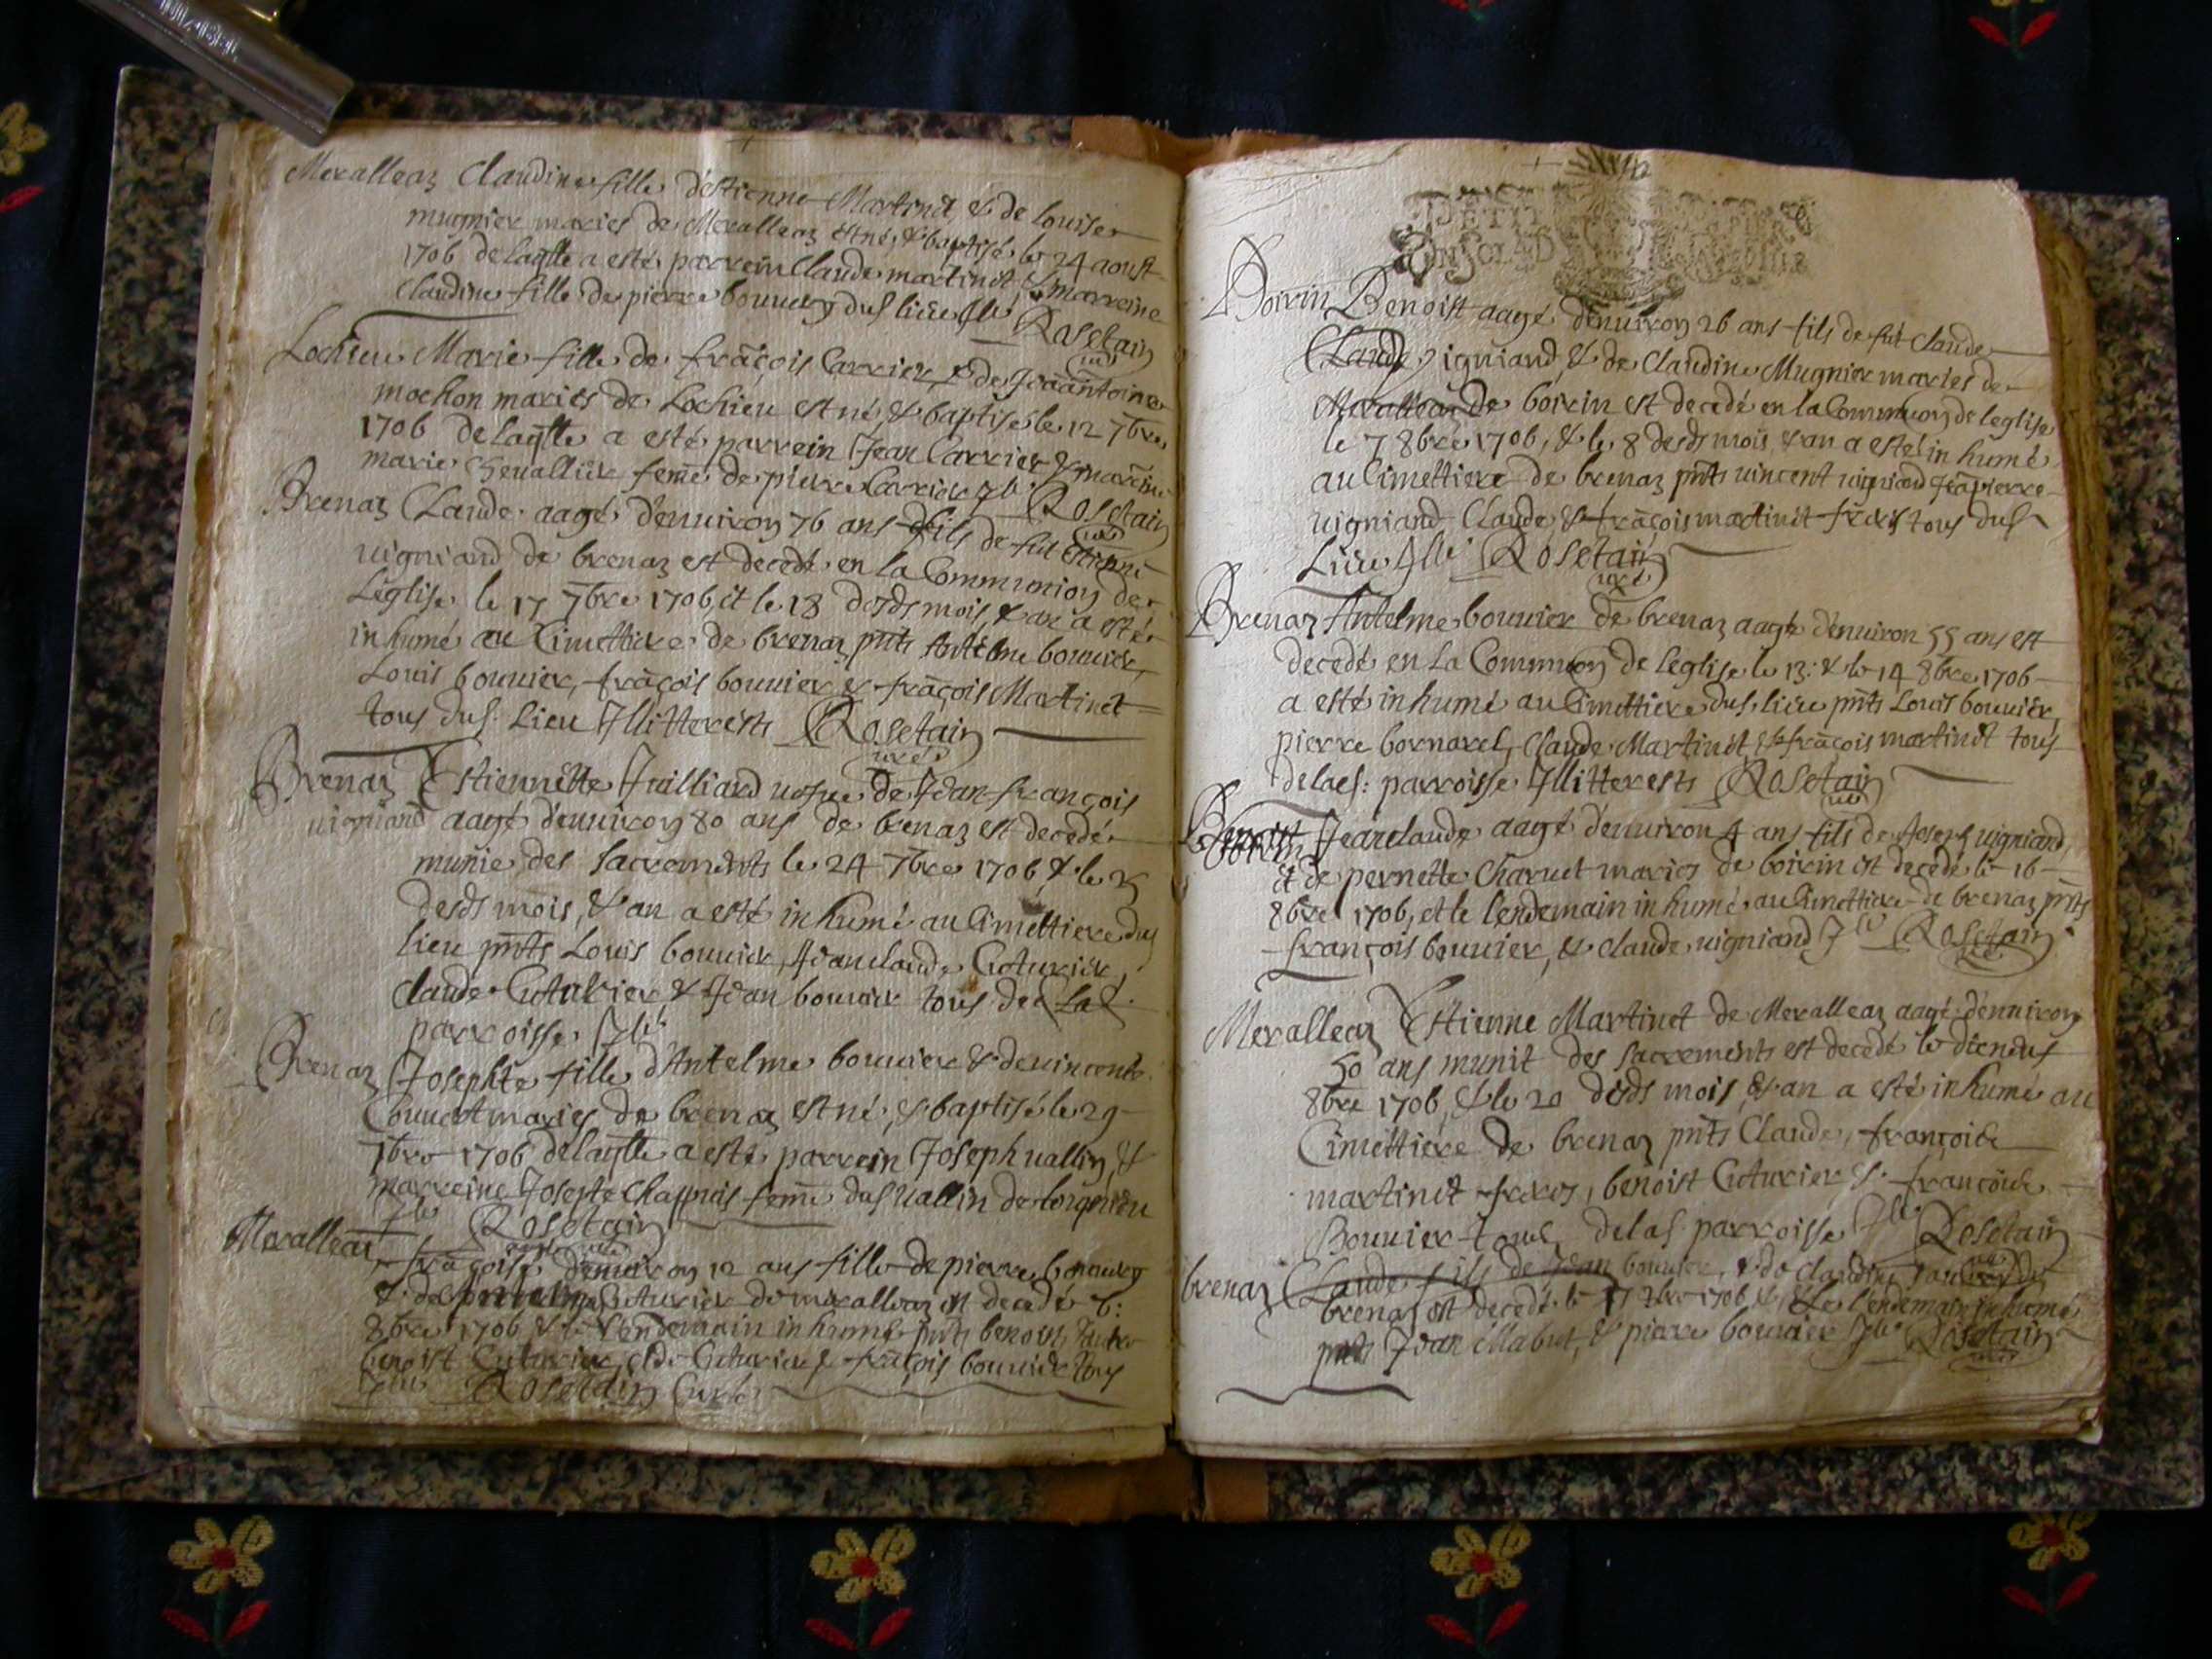 Meralleaz Claudine fille d'Estienne Martinet & de louise
mugnier maries de Meralleaz est né, & baptisé le 24 aoust
1706 de laqlle a esté parrein Claude martinet & marreine
Claudine fille de pierre bouuery dus lieu Jlle Rosetain
curé
Lochieu Marie fille de frãçois Carrier, & de Jeanantoine
mochon mariés de Lochieu est né, & baptisé le 12 7bre
1706 de laqlle a esté parrein Jean Carrier & mareine
marie Cheuallier feme de pierre Carrier Jll Rosetain
curé
Brenaz Claude aagé denuiron 76 ans fils de fut Estienne
uigniand de brenaz est decedé en la Communion de
Léglise le 17 7bre 1706, et le 18 desds mois, & an a esté
inhumé au Cimettiere de brenaz pnts Antelme bouuier,
Louis bouuier, frãçois bouuier & frãçois Martinet
tous dus. Lieu Jllitterests Rosetain
curé
Brenaz Estiennette Juilliard uefue de Jean françois
uigniand aagé denuiron 80 ans de brenaz est decedé
munie des sacrements le 24 7bre 1706, & le 25
desds mois, & an a esté inhumé au Cimettiere dus
lieu pnts Louis bouuier, Jeanclaude Cuturier,
claude Cuturier & Jean bouuier tous de la s.
parroisse Jlle
Brenaz Josephte fille d'Antelme bouuier & de uincente
Couuet maries de brenaz est né, & baptisé le 29
7bre 1706 de laqlle a esté parrein Joseph uallin, &
marreine Josepte Chappuis feme dus uallin de
Jlle Rosetain
Meralleaz frãçoise denuiron 12 ans fille de pierre bouuery
& de Cuturier de meralleaz est decedé
8bre 1706 & le lendemain inhumé pnts benoist
benoist Cuturier, Cuturier & frãçois bouuier tous
Rosetain Curé
PETIT PAPIER
Boirin Benoist aagé denuiron 26 ans fils de fut Claude
Claude uigniand, & de Claudine Mugnier maries de
Meralleaz de boirin est decedé en la Communion de leglise
le 7 8bre 1706, & le 8 desds mois, & an a esté inhumé
au Cimettiere de brenaz pnts uincent uigniand Jeãpierre
uigniand Claude, & frãçois martinet freres tous dus
Lieu Jlle Rosetain
curé
Brenaz Antelme bouuier de brenaz aagé denuiron 55 ans est
decedé en la Communion de leglise le 13: & le 14 8bre 1706
a esté inhumé au Cimettiere dus. lieu pnts Louis bouuier,
pierre bornarel, Claude Martinet, & frãçois martinet tous
de la s: parroisse Jllitterests Rosetain
curé
Boirin Jeanclaude aagé denuiron 4 ans fils de Joseph uigniand,
et de pernette Charuet maries de boirin est decedé le 16
8bre 1706, et le lendemain inhumé au Cimettiere de brenaz pnts
françois bouuier, & claude uigniand Jlle Rosetain
curé
Meralleaz Estienne Martinet de Meralleaz aagé denuiron
50 ans munit des sacrements est decedé le dixneuf
8bre 1706, & le 20 desds mois, & an a esté inhumé au
Cimettiere de brenaz pnts Claude, françois
martinet freres, benoist Cuturier & françois
Bouuier tous de la s. parroisse Jlle Rosetain
curé
brenaz Claude fils de Jean bouuier, & de claudine
brenaz est decedé le 17 1706 & le lendemain inhumé
pnts Jean Mabut, & pierre bouuier Jlle Rosetain
curé